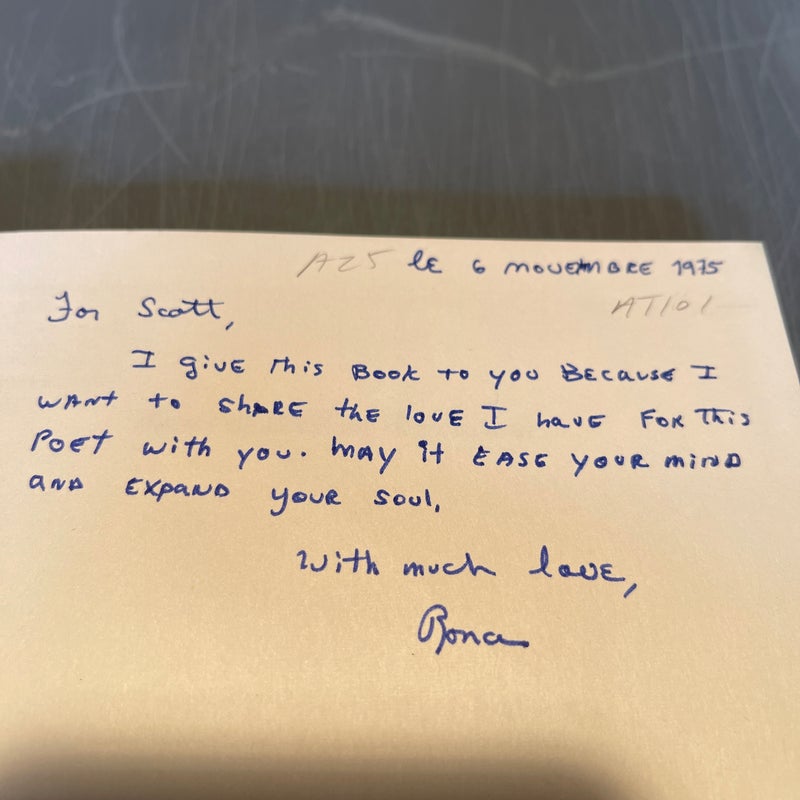 AZ5 le 6 novembre 1975
AT101
For Scott,
I give this Book to you Because I
want to share the love I have for this
Poet with you. May it ease your mind
and expand your soul.
With much love,
Rona